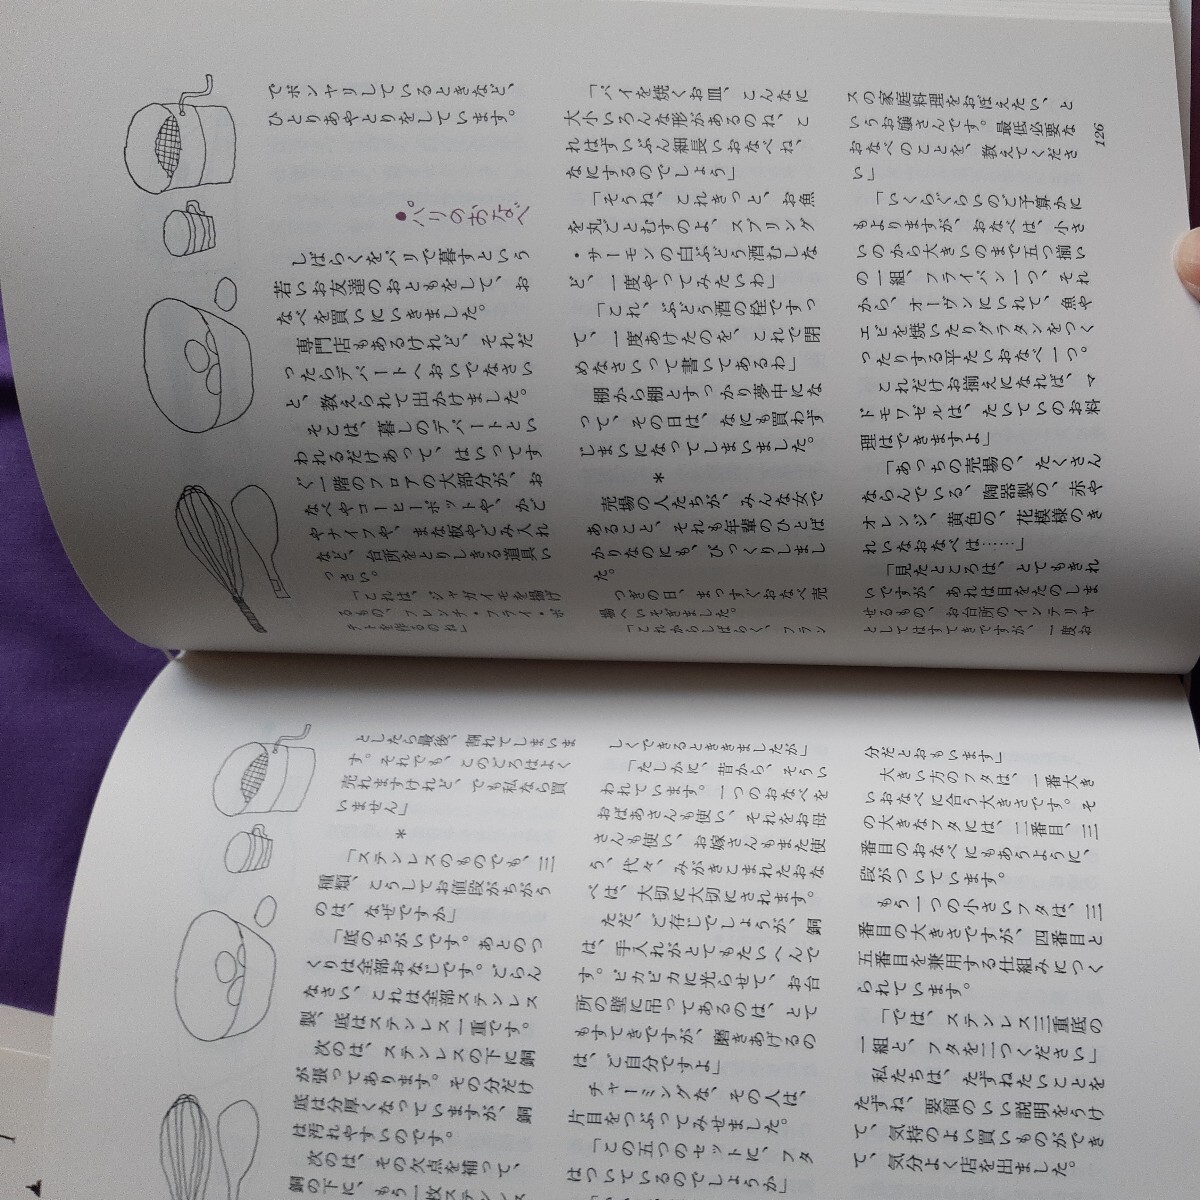 でボンヤリしているときなど、
ひとりあやとりをしています。
●パリのおなべ
しばらくをパリで暮すという
若いお友達のおともをして、お
なべを買いにいきました。
専門店もあるけれど、それだ
ったらデパートへおいでなさい
と、教えられて出かけました。
そこは、暮しのデパートとい
われるだけあって、はいってす
ぐ一階のフロアの大部分が、お
なべやコーヒーポットや、かご
やナイフや、まな板やごみ入れ
など、台所をとりしきる道具い
っさい。
「これは、ジャガイモを揚げ
るもの、フレンチ・フライ・ポ
テトを作るのね」
「パイを焼くお皿、こんなに
大小いろんな形があるのね、こ
れはずいぶん細長いおなべね、
なにするのでしょう」
「そうね、これきっと、お魚
を丸ごとむすのよ、スプリング
・サーモンの白ぶどう酒むしな
ど、一度やってみたいわ」
「これ、ぶどう酒の栓ですっ
て、一度あけたのを、これで閉
めなさいって書いてあるわ」
棚から棚とすっかり夢中にな
って、その日は、なにも買わず
じまいになってしまいました。
*
売場の人たちが、みんな女で
あること、それも年輩のひとば
かりなのにも、びっくりしまし
た。
つぎの日、まっすぐおなべ売
場へいそぎました。
「これからしばらく、フラン
スの家庭料理をおぼえたい、と
いうお嬢さんです。最低必要な
おなべのことを、教えてくださ
い」
「いくらぐらいのご予算かに
もよりますが、おなべは、小さ
いのから大きいのまで五つ揃い
の一組、フライパン一つ、それ
から、オーヴンにいれて、魚や
エビを焼いたりグラタンをつく
ったりする平たいおなべ一つ。
これだけお揃えになれば、マ
ドモワゼルは、たいていのお料
理はできますよ」
「あっちの売場の、たくさん
ならんでいる、陶器製の、赤や
オレンジ、黄色の、花模様のき
れいなおなべは……」
「見たところは、とてもきれ
いですが、あれは目をたのしま
せるもの、お台所のインテリヤ
としてはすてきですが、一度お
126
としたら最後、割れてしまいま
す。それでも、このごろはよく
売れますけれど、でも私なら買
いません」
*
「ステンレスのものでも、三
種類、こうしてお値段がちがう
のは、なぜですか」
「底のちがいです。あとのつ
くりは全部おなじです。ごらん
なさい、これは全部ステンレス
製、底はステンレス一重です。
次のは、ステンレスの下に銅
が張ってあります。その分だけ
底は分厚くなっていますが、銅
は汚れやすいのです。
次のは、その欠点を補って、
銅の下に、もう一枚ステンレス
しくできるとききましたが」
「たしかに、昔から、そうい
われています。一つのおなべを
おばあさんも使い、それをお母
さんも使い、お嫁さんもまた使
う、代々、みがきこまれたおな
べは、大切に大切にされます。
ただ、ご存じでしょうが、銅
は、手入れがとてもたいへんで
す。ピカピカに光らせて、お台
所の壁に吊ってあるのは、とて
もすてきですが、磨きあげるの
は、ご自分ですよ」
チャーミングな、その人は、
片目をつぶってみせました。
「この五つのセットに、フタ
はついているのでしょうか」
分だとおもいます」
大きい方のフタは、一番大き
いおなべに合う大きさです。そ
の大きなフタには、二番目、三
番目のおなべにもあうように、
段がついています。
もう一つの小さいフタは、三
番目の大きさですが、四番目と
五番目を兼用する仕組みにつく
られています。
「では、ステンレス三重底の
一組と、フタを二つください」
私たちは、たずねたいことを
たずね、要領のいい説明をうけ
て、気持のよい買いものができ
て、気分よく店を出ました。